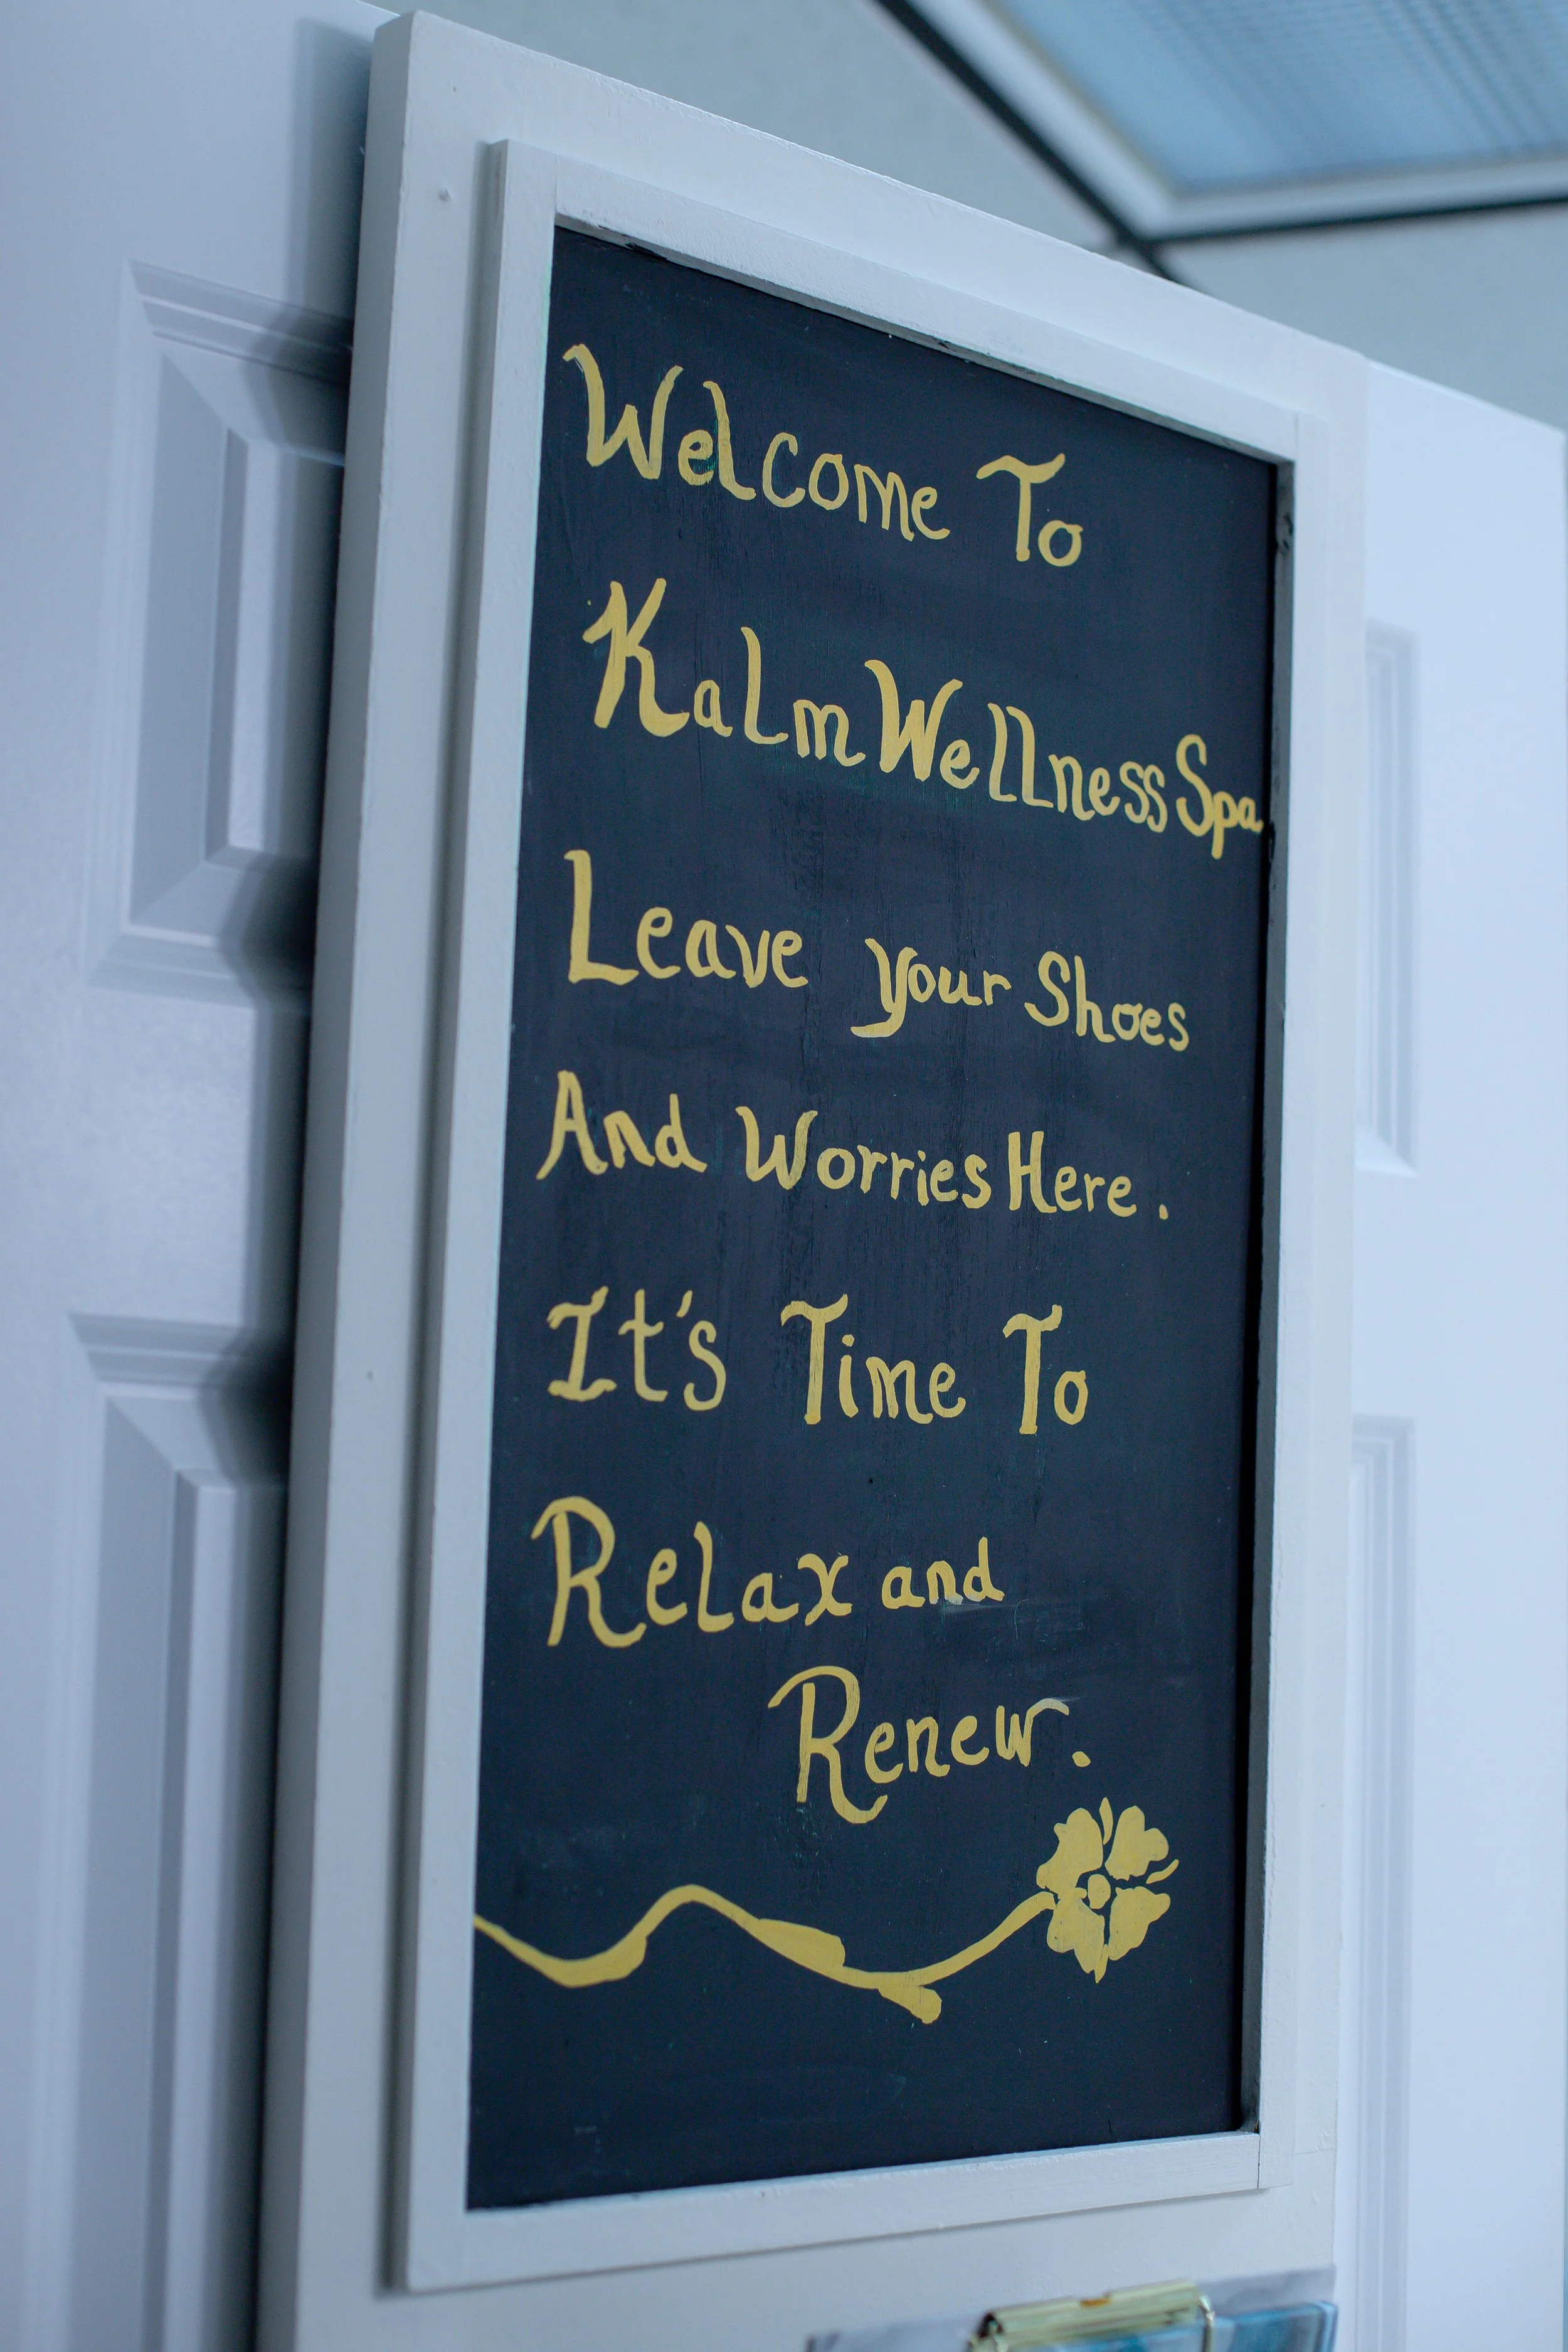 Welcome To
Kalm Wellness Spa
Leave your Shoes
And Worries Here.
It's Time To
Relax and
Renew.